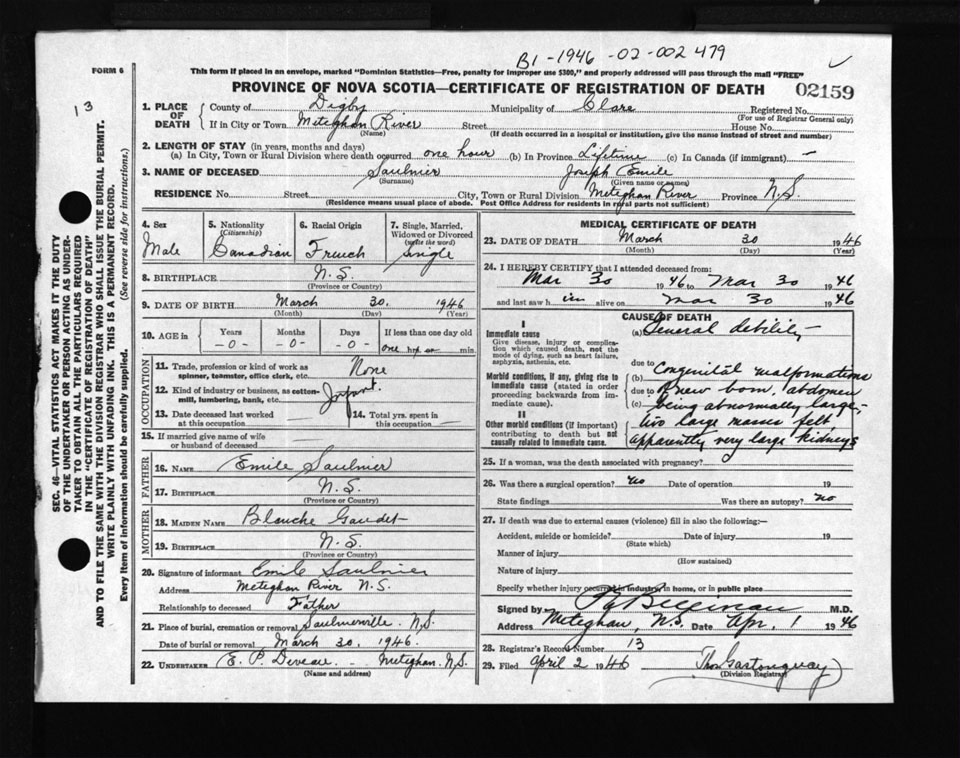 B1-1946-02-002479
FORM 6
This form if placed in an envelope, marked "Dominion Statistics—Free, penalty for improper use $300," and properly addressed will pass through the mail "FREE"
PROVINCE OF NOVA SCOTIA—CERTIFICATE OF REGISTRATION OF DEATH
02159
13
SEC. 46—VITAL STATISTICS ACT MAKES IT THE DUTY
OF THE UNDERTAKER OR PERSON ACTING AS UNDER-
TAKER TO OBTAIN ALL THE PARTICULARS REQUIRED
IN THE "CERTIFICATE OF REGISTRATION OF DEATH"
AND TO FILE THE SAME WITH THE DIVISION REGISTRAR WHO SHALL ISSUE THE BURIAL PERMIT.
WRITE PLAINLY WITH UNFADING INK. THIS IS A PERMANENT RECORD.
Every item of information should be carefully supplied. (See reverse side for instructions.)
1. PLACE OF DEATH County of Digby Municipality of Clare Registered No.
(For use of Registrar General only)
If in City or Town Meteghan River Street House No.
(Name) (If death occurred in a hospital or institution, give the name instead of street and number)
2. LENGTH OF STAY (in years, months and days)
(a) In City, Town or Rural Division where death occurred one hour (b) In Province Lifetime (c) In Canada (if immigrant) —
3. NAME OF DECEASED Saulnier Joseph Emile
(Surname) (Given name or names)
RESIDENCE No. Street City, Town or Rural Division Meteghan River Province N.S.
(Residence means usual place of abode. Post Office Address for residents in rural parts not sufficient)
4. Sex Male
5. Nationality (Citizenship) Canadian
6. Racial Origin French
7. Single, Married, Widowed or Divorced (write the word) Single
8. BIRTHPLACE N.S.
(Province or Country)
9. DATE OF BIRTH March 30. 1946
(Month) (Day) (Year)
10. AGE in Years -0- Months -0- Days -0- If less than one day old one hrs. or min.
OCCUPATION
11. Trade, profession or kind of work as spinner, teamster, office clerk, etc. None
12. Kind of industry or business, as cotton-mill, lumbering, bank, etc. Infant.
13. Date deceased last worked at this occupation —
14. Total yrs. spent in this occupation —
15. If married give name of wife or husband of deceased —
FATHER
16. NAME Emile Saulnier
17. BIRTHPLACE N.S.
(Province or Country)
MOTHER
18. MAIDEN NAME Blanche Gaudet
19. BIRTHPLACE N.S.
(Province or Country)
20. Signature of informant Emile Saulnier
Address Meteghan River N.S.
Relationship to deceased Father
21. Place of burial, cremation or removal Saulnierville. N.S.
Date of burial or removal March 30. 1946.
22. UNDERTAKER E. P. Deveau. - Meteghan. N.S.
(Name and address)
MEDICAL CERTIFICATE OF DEATH
23. DATE OF DEATH March 30 1946
(Month) (Day) (Year)
24. I HEREBY CERTIFY that I attended deceased from:
Mar 30 1946 to Mar 30 1946
and last saw h im alive on Mar 30 1946
CAUSE OF DEATH
I
Immediate cause (a) General debility
Give disease, injury or complication which caused death, not the mode of dying, such as heart failure, asphyxia, asthenia, etc.
due to
Morbid conditions, if any, giving rise to immediate cause (stated in order proceeding backwards from immediate cause).
(b) Congenital malformations
due to
(c) new born, abdomen
being abnormally large—
II
Other morbid conditions (if important) contributing to death but not causally related to immediate cause.
two large masses felt
apparently very large kidneys
25. If a woman, was the death associated with pregnancy?
26. Was there a surgical operation? no Date of operation 19
State findings Was there an autopsy? no
27. If death was due to external causes (violence) fill in also the following:—
Accident, suicide or homicide? Date of injury 19
(State which)
Manner of injury
(How sustained)
Nature of injury
Specify whether injury occurred in industry, in home, or in public place
Signed by M.D.
Address Meteghan, N.S. Date Apr. 1 1946
28. Registrar's Record Number 13
29. Filed April 2 1946 Thos Gastonguay
(Division Registrar)